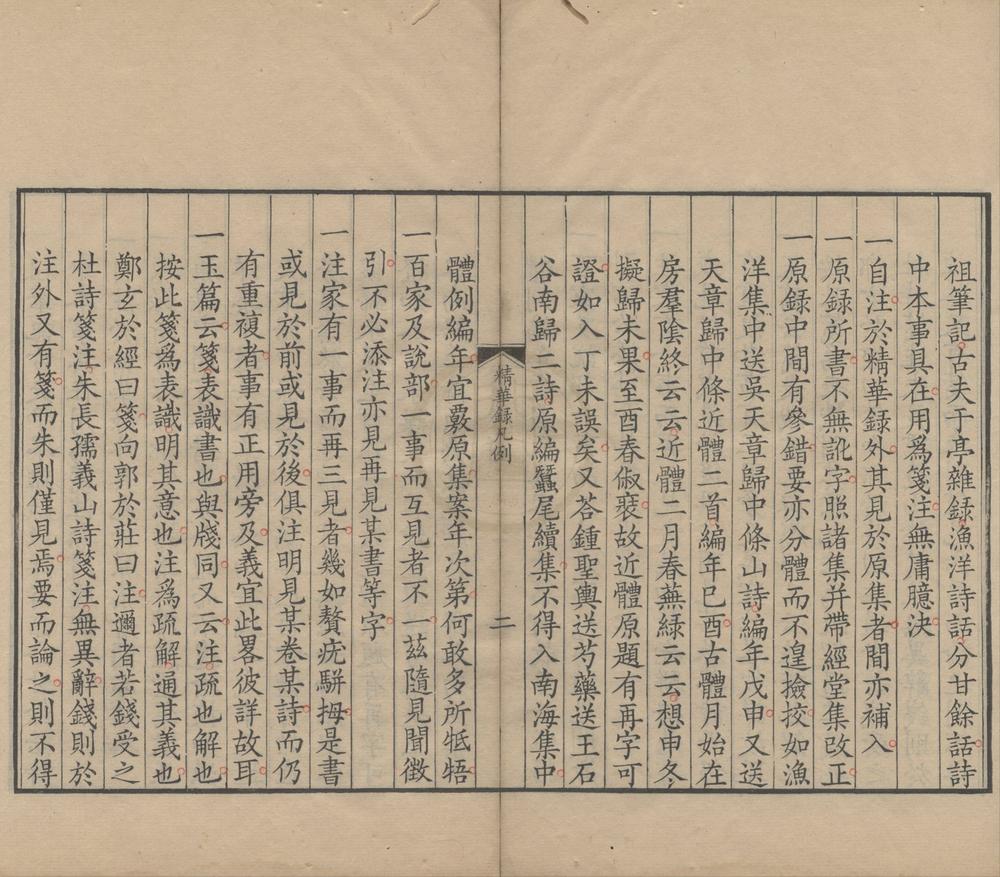 祖筆記古夫于亭雜録漁洋詩話分甘餘話詩
中本事具在用爲箋注無庸臆決
一自注於精華録外其見於原集者間亦補入
一原録所書不無訛字照諸集并帶經堂集改正
一原録中間有參錯要亦分體而不遑撿挍如漁
洋集中送吳天章歸中條山詩編年戊申又送
天章歸中條近體二首編年已酉古體月始在
房羣陰終云云近體二月春蕪緑云云想申冬
擬歸未果至酉春俶裝故近體原題有再字可
證如入丁未誤矣又荅鍾聖輿送芍藥送王石
谷南歸二詩原編蠶尾續集不得入南海集中
精華録凡例
二
體例編年宜覈原集案年次第何敢多所牴牾
一百家及說部一事而互見者不一茲隨見聞徴
引不必添注亦見再見某書等字
一注家有一事而再三見者幾如贅疣駢拇是書
或見於前或見於後俱注明見某卷某詩而仍
有重複者事有正用旁及義宜此畧彼詳故耳
一玉篇云箋表識書也與牋同又云注疏也解也
按此箋爲表識明其意也注爲疏解通其義也
鄭玄於經曰箋向郭於莊曰注邇者若錢受之
杜詩箋注朱長孺義山詩箋注無異辭錢則於
注外又有箋而朱則僅見焉要而論之則不得